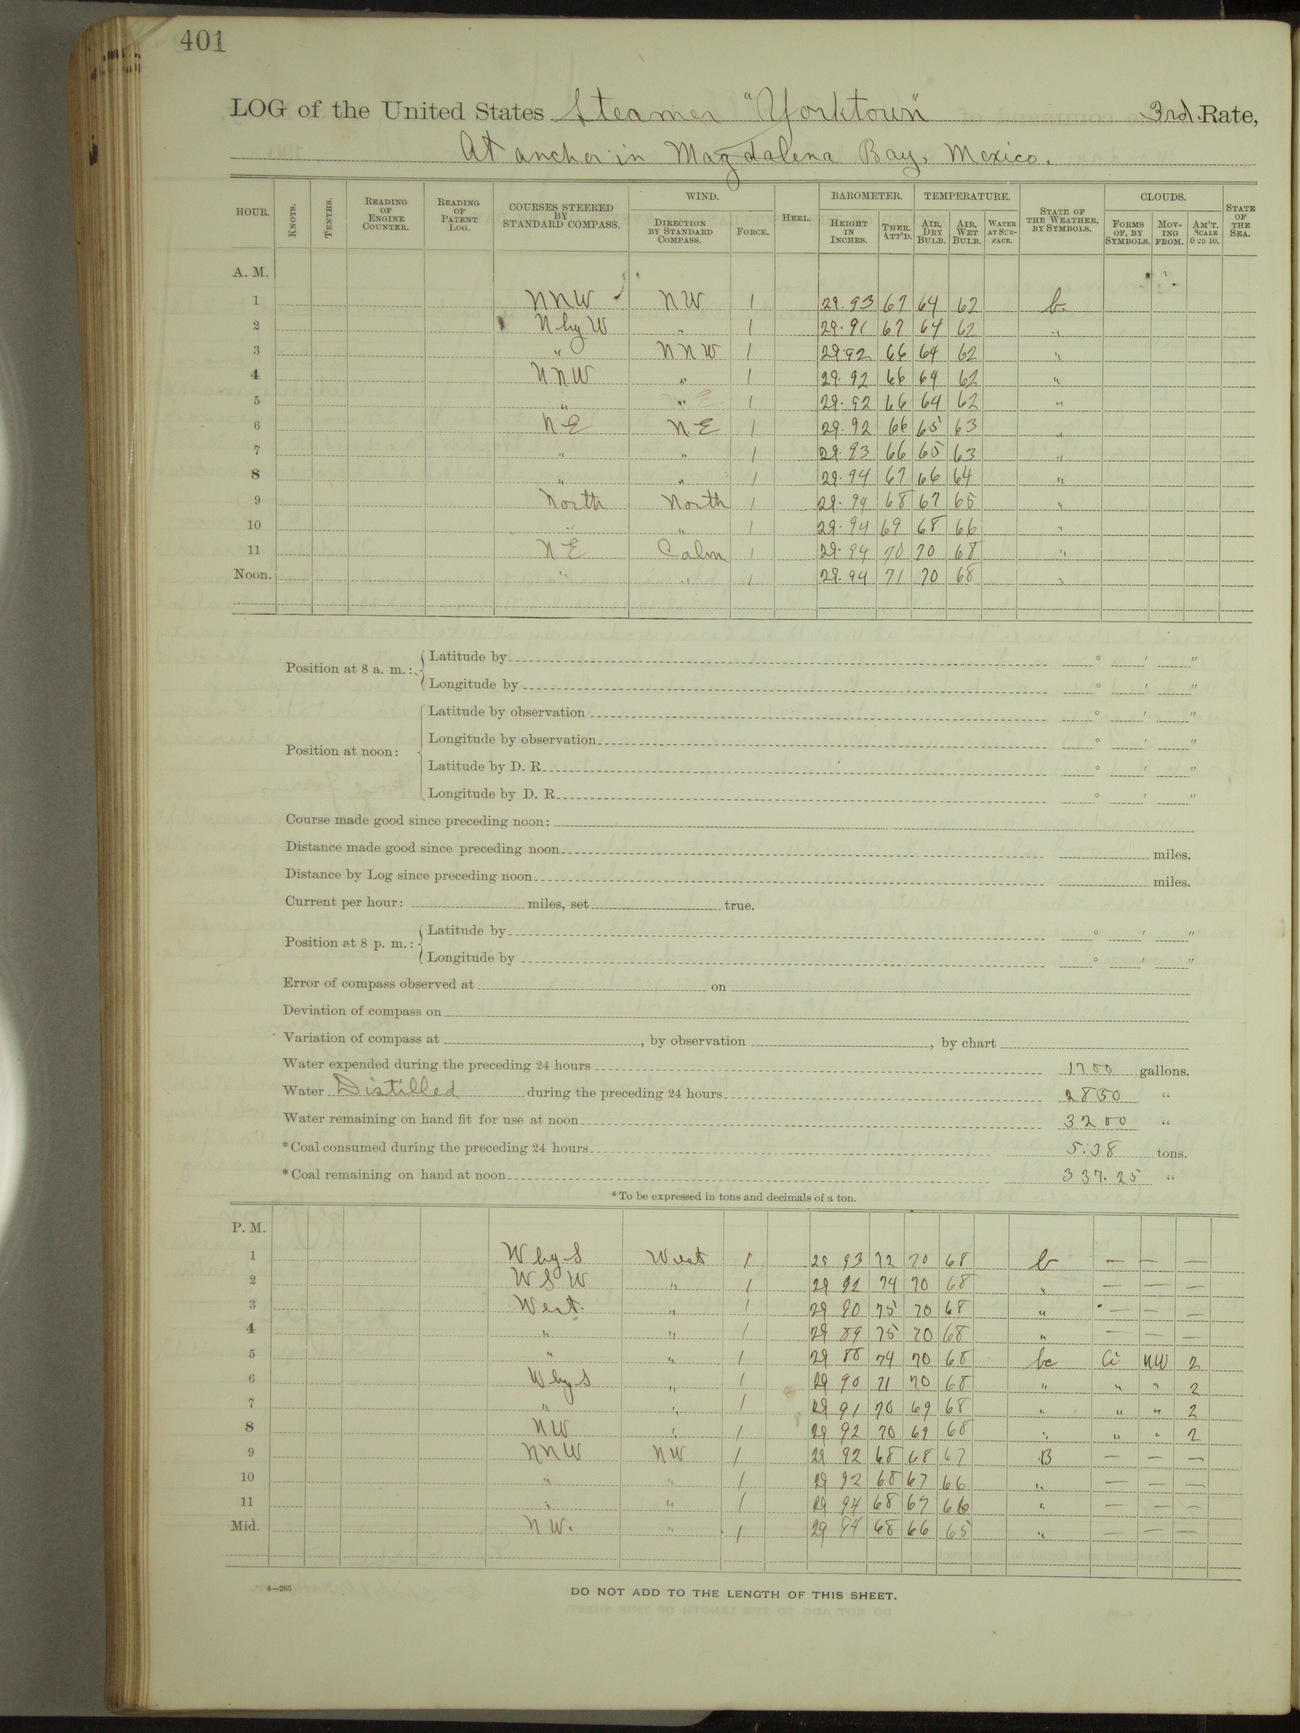 401
LOG of the United States Steamer "Yorktown" 3rd Rate,
At anchor in Magdalena Bay, Mexico.
HOUR. KNOTS. TENTHS. READING OF ENGINE COUNTER. READING OF PATENT LOG. COURSES STEERED BY STANDARD COMPASS. WIND. DIRECTION BY STANDARD COMPASS. FORCE. HEEL. BAROMETER. HEIGHT IN INCHES. THER. ATT'D. TEMPERATURE. AIR, DRY BULB. AIR, WET BULB. WATER AT SURFACE. STATE OF THE WEATHER, BY SYMBOLS. CLOUDS. FORMS OF, BY SYMBOLS. MOVING FROM. AM'T. SCALE 0 TO 10. STATE OF THE SEA.
A. M.
1 NNW NW 1 29.93 67 64 62 b.
2 N by W " 1 29.91 67 64 62 "
3 " NNW 1 29.92 66 64 62 "
4 NNW " 1 29.92 66 64 62 "
5 " " 1 29.92 66 64 62 "
6 NE NE 1 29.92 66 65 63 "
7 " " 1 29.93 66 65 63 "
8 " " 1 29.94 67 66 64 "
9 North North 1 29.94 68 67 65 "
10 " " 1 29.94 69 68 66 "
11 NE Calm 1 29.94 70 70 68 "
Noon. " " 1 29.94 71 70 68 "
Position at 8 a. m.: Latitude by ° ′ ″
Longitude by ° ′ ″
Position at noon: Latitude by observation ° ′ ″
Longitude by observation ° ′ ″
Latitude by D. R. ° ′ ″
Longitude by D. R. ° ′ ″
Course made good since preceding noon:
Distance made good since preceding noon miles.
Distance by Log since preceding noon miles.
Current per hour: miles, set true.
Position at 8 p. m.: Latitude by ° ′ ″
Longitude by ° ′ ″
Error of compass observed at on
Deviation of compass on
Variation of compass at , by observation , by chart
Water expended during the preceding 24 hours 1700 gallons.
Water Distilled during the preceding 24 hours 2850 "
Water remaining on hand fit for use at noon 3200 "
*Coal consumed during the preceding 24 hours 5.38 tons.
*Coal remaining on hand at noon 337.25 "
*To be expressed in tons and decimals of a ton.
P. M.
1 W by S West 1 29 93 72 70 68 b — — —
2 WSW " 1 29 92 74 70 68 " — — —
3 West. " 1 29 90 75 70 68 " — — —
4 " " 1 29 89 75 70 68 " — — —
5 " " 1 29 88 74 70 68 bc Ci NW 2
6 W by S " 1 29 90 71 70 68 " " " 2
7 " " 1 29 91 70 69 68 " " " 2
8 NW " 1 29 92 70 69 68 " " " 2
9 NNW NW 1 29 92 68 68 67 B — — —
10 " " 1 29 92 68 67 66 " — — —
11 " " 1 29 94 68 67 66 " — — —
Mid. NW. " 1 29 94 68 66 65 " — — —
4—265
DO NOT ADD TO THE LENGTH OF THIS SHEET.